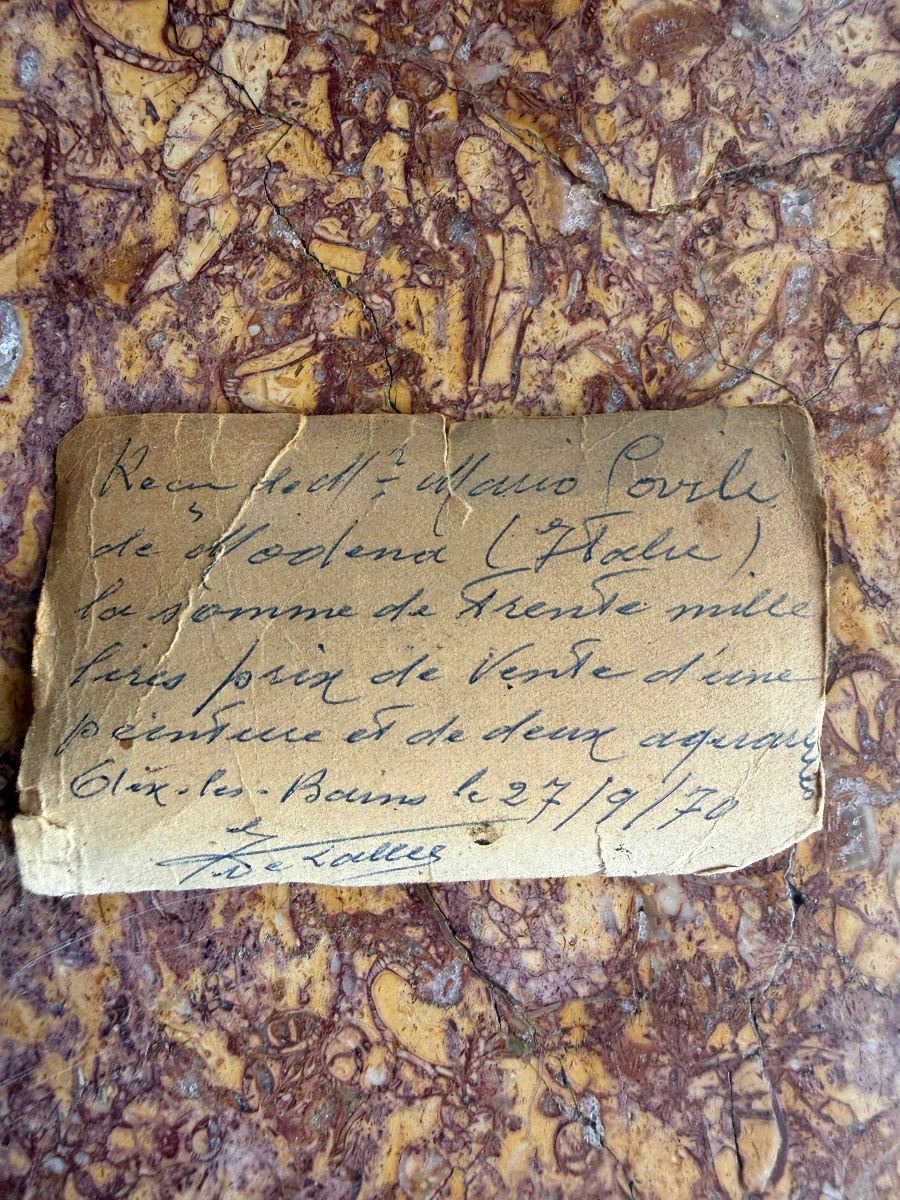 Reçu de Mr Mario Povili
de Modena (Italie)
la somme de trente mille
lires prix de vente d'une
peinture et de deux aquarelles
Aix-les-Bains le 27/9/70